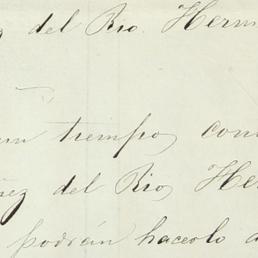 del Rio Herm
un tiempo, com
ñez del Rio, He
podrán hacerlo a